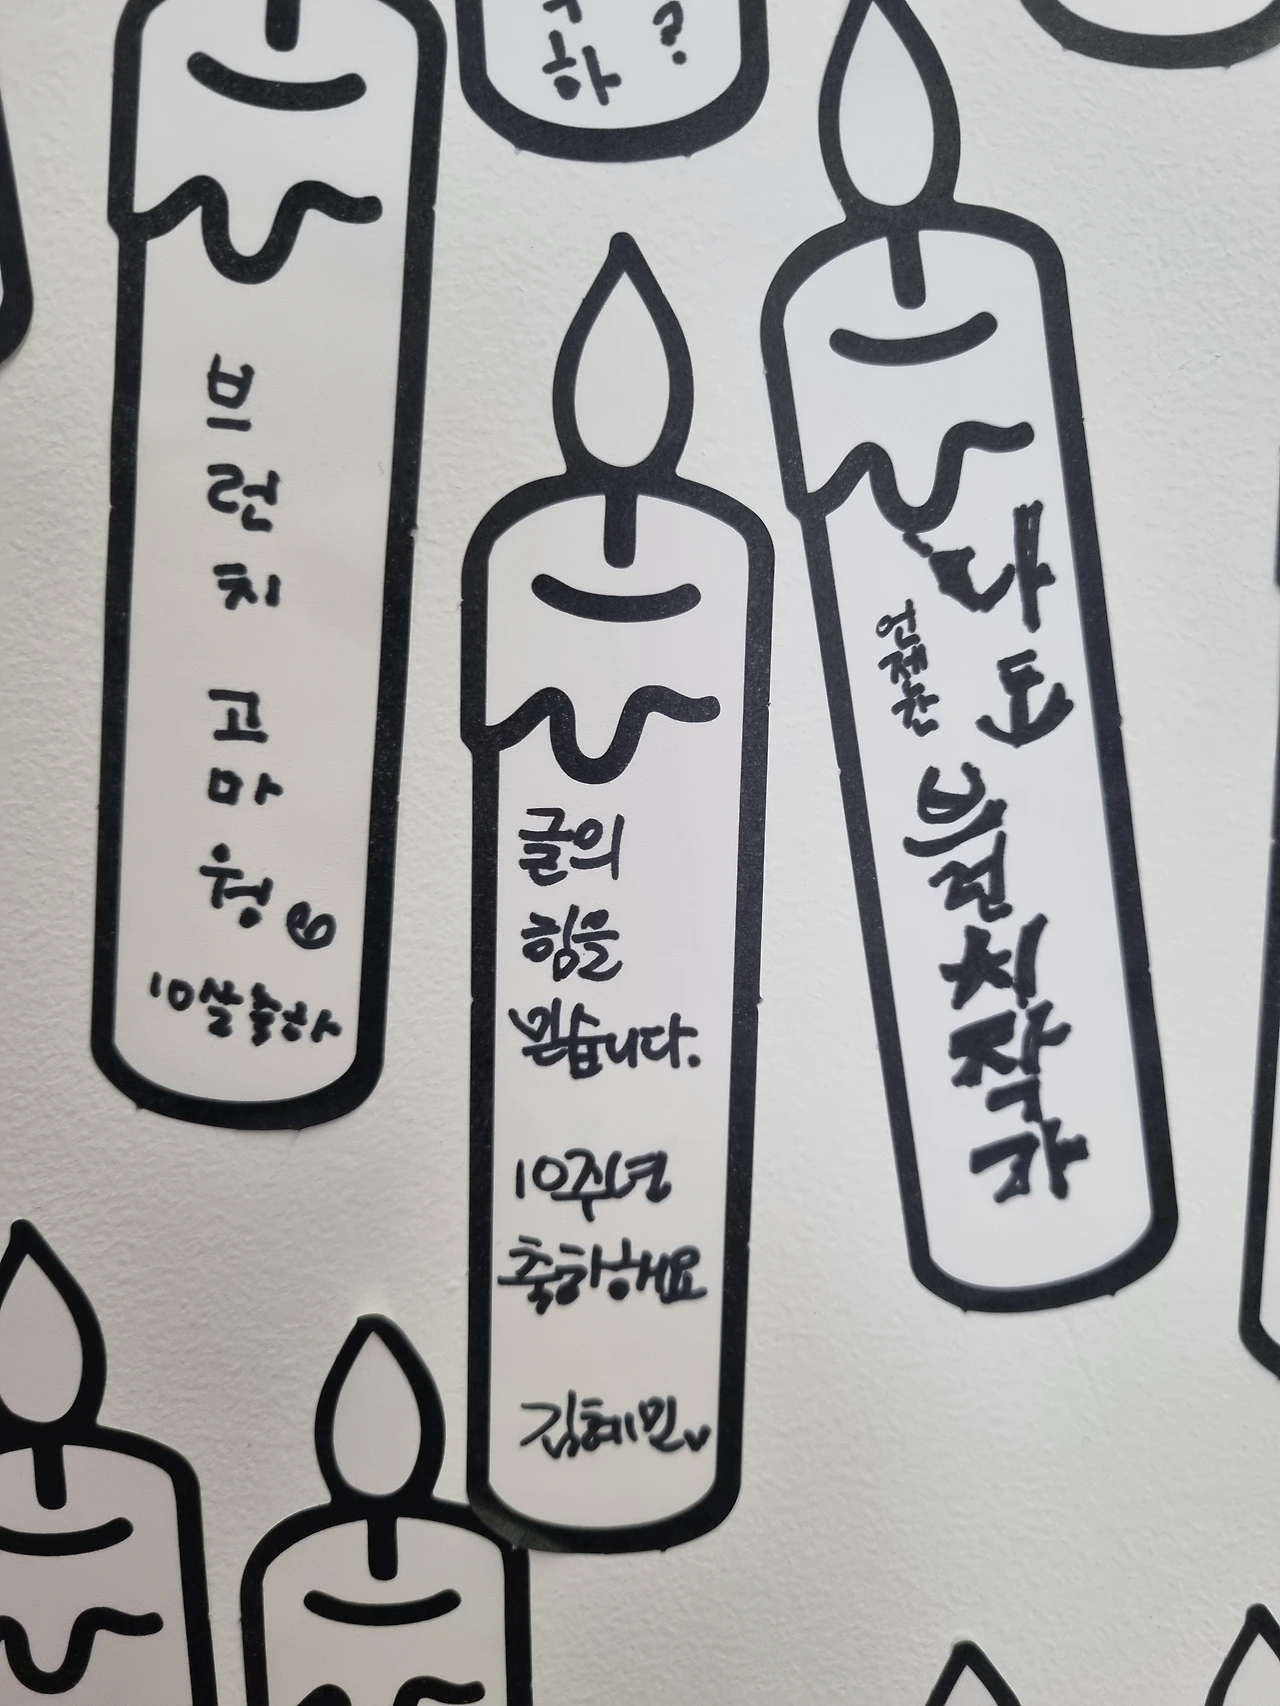 하
?
브
런
치
고
마
워
10살 축하
글의
힘을
믿습니다.
10주년
축하해요
김혜민
나도
언젠간